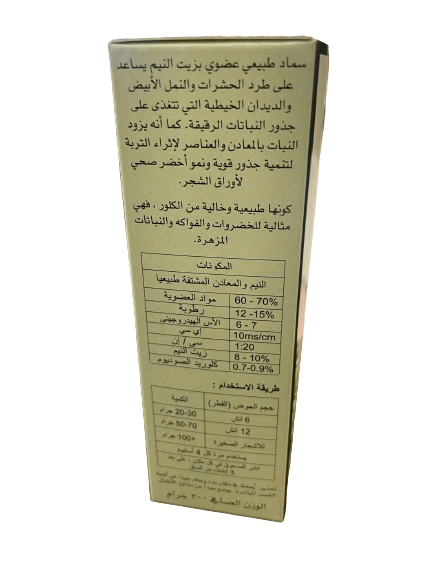 سماد طبيعي عضوي بزيت النيم يساعد
على طرد الحشرات والنمل الأبيض
والديدان الخيطية التي تتغذى على
جذور النباتات الرقيقة. كما أنه يزود
النبات بالمعادن والعناصر لإثراء التربة
لتنمية جذور قوية ونمو أخضر صحي
لأوراق الشجر.
كونها طبيعية وخالية من الكلور ، فهي
مثالية للخضروات والفواكه والنباتات
المزهرة.
المكونات
النيم والمعادن المشتقة طبيعيا
مواد العضوية 60 - 70%
رطوبة 12 -15%
الأس الهيدروجيني 6 - 7
إي سي 10ms/cm
سي / إن 1:20
زيت النيم 8 - 10%
كلوريد الصوديوم 0.7-0.9%
طريقة الاستخدام :
حجم الحوض (القطر) الكمية
6 انش 20-30 جرام
12 انش 50-70 جرام
للأشجار الصغيرة +100 جرام
يستخدم مرة كل 4 أسابيع
الوزن الصافي ٢٠٠ جرام